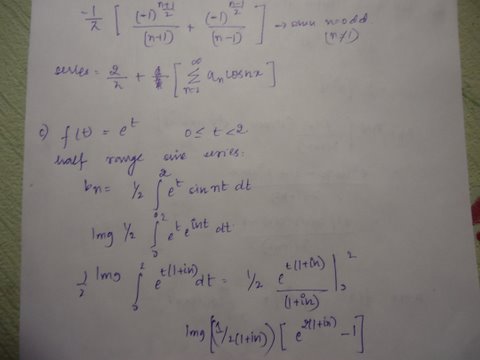 -1/2 [ (-1)^((n+1)/2) / (n+1) + (-1)^((n-1)/2) / (n-1) ] → n=odd
(n≠1)
series = 2/π + [ Σ_{n=2}^{∞} a_n cos nx ]
c) f(t) = e^t 0 ≤ t < 2
half range sine series:
b_n = 1/2 ∫_0^2 e^t sin nt dt
Img 1/2 ∫_0^2 e^t e^{int} dt
1/2 Img ∫_0^2 e^{t(1+in)} dt = 1/2 e^{t(1+in)} / (1+in) |_0^2
Img [(1/2(1+in)) [ e^{2(1+in)} - 1 ]